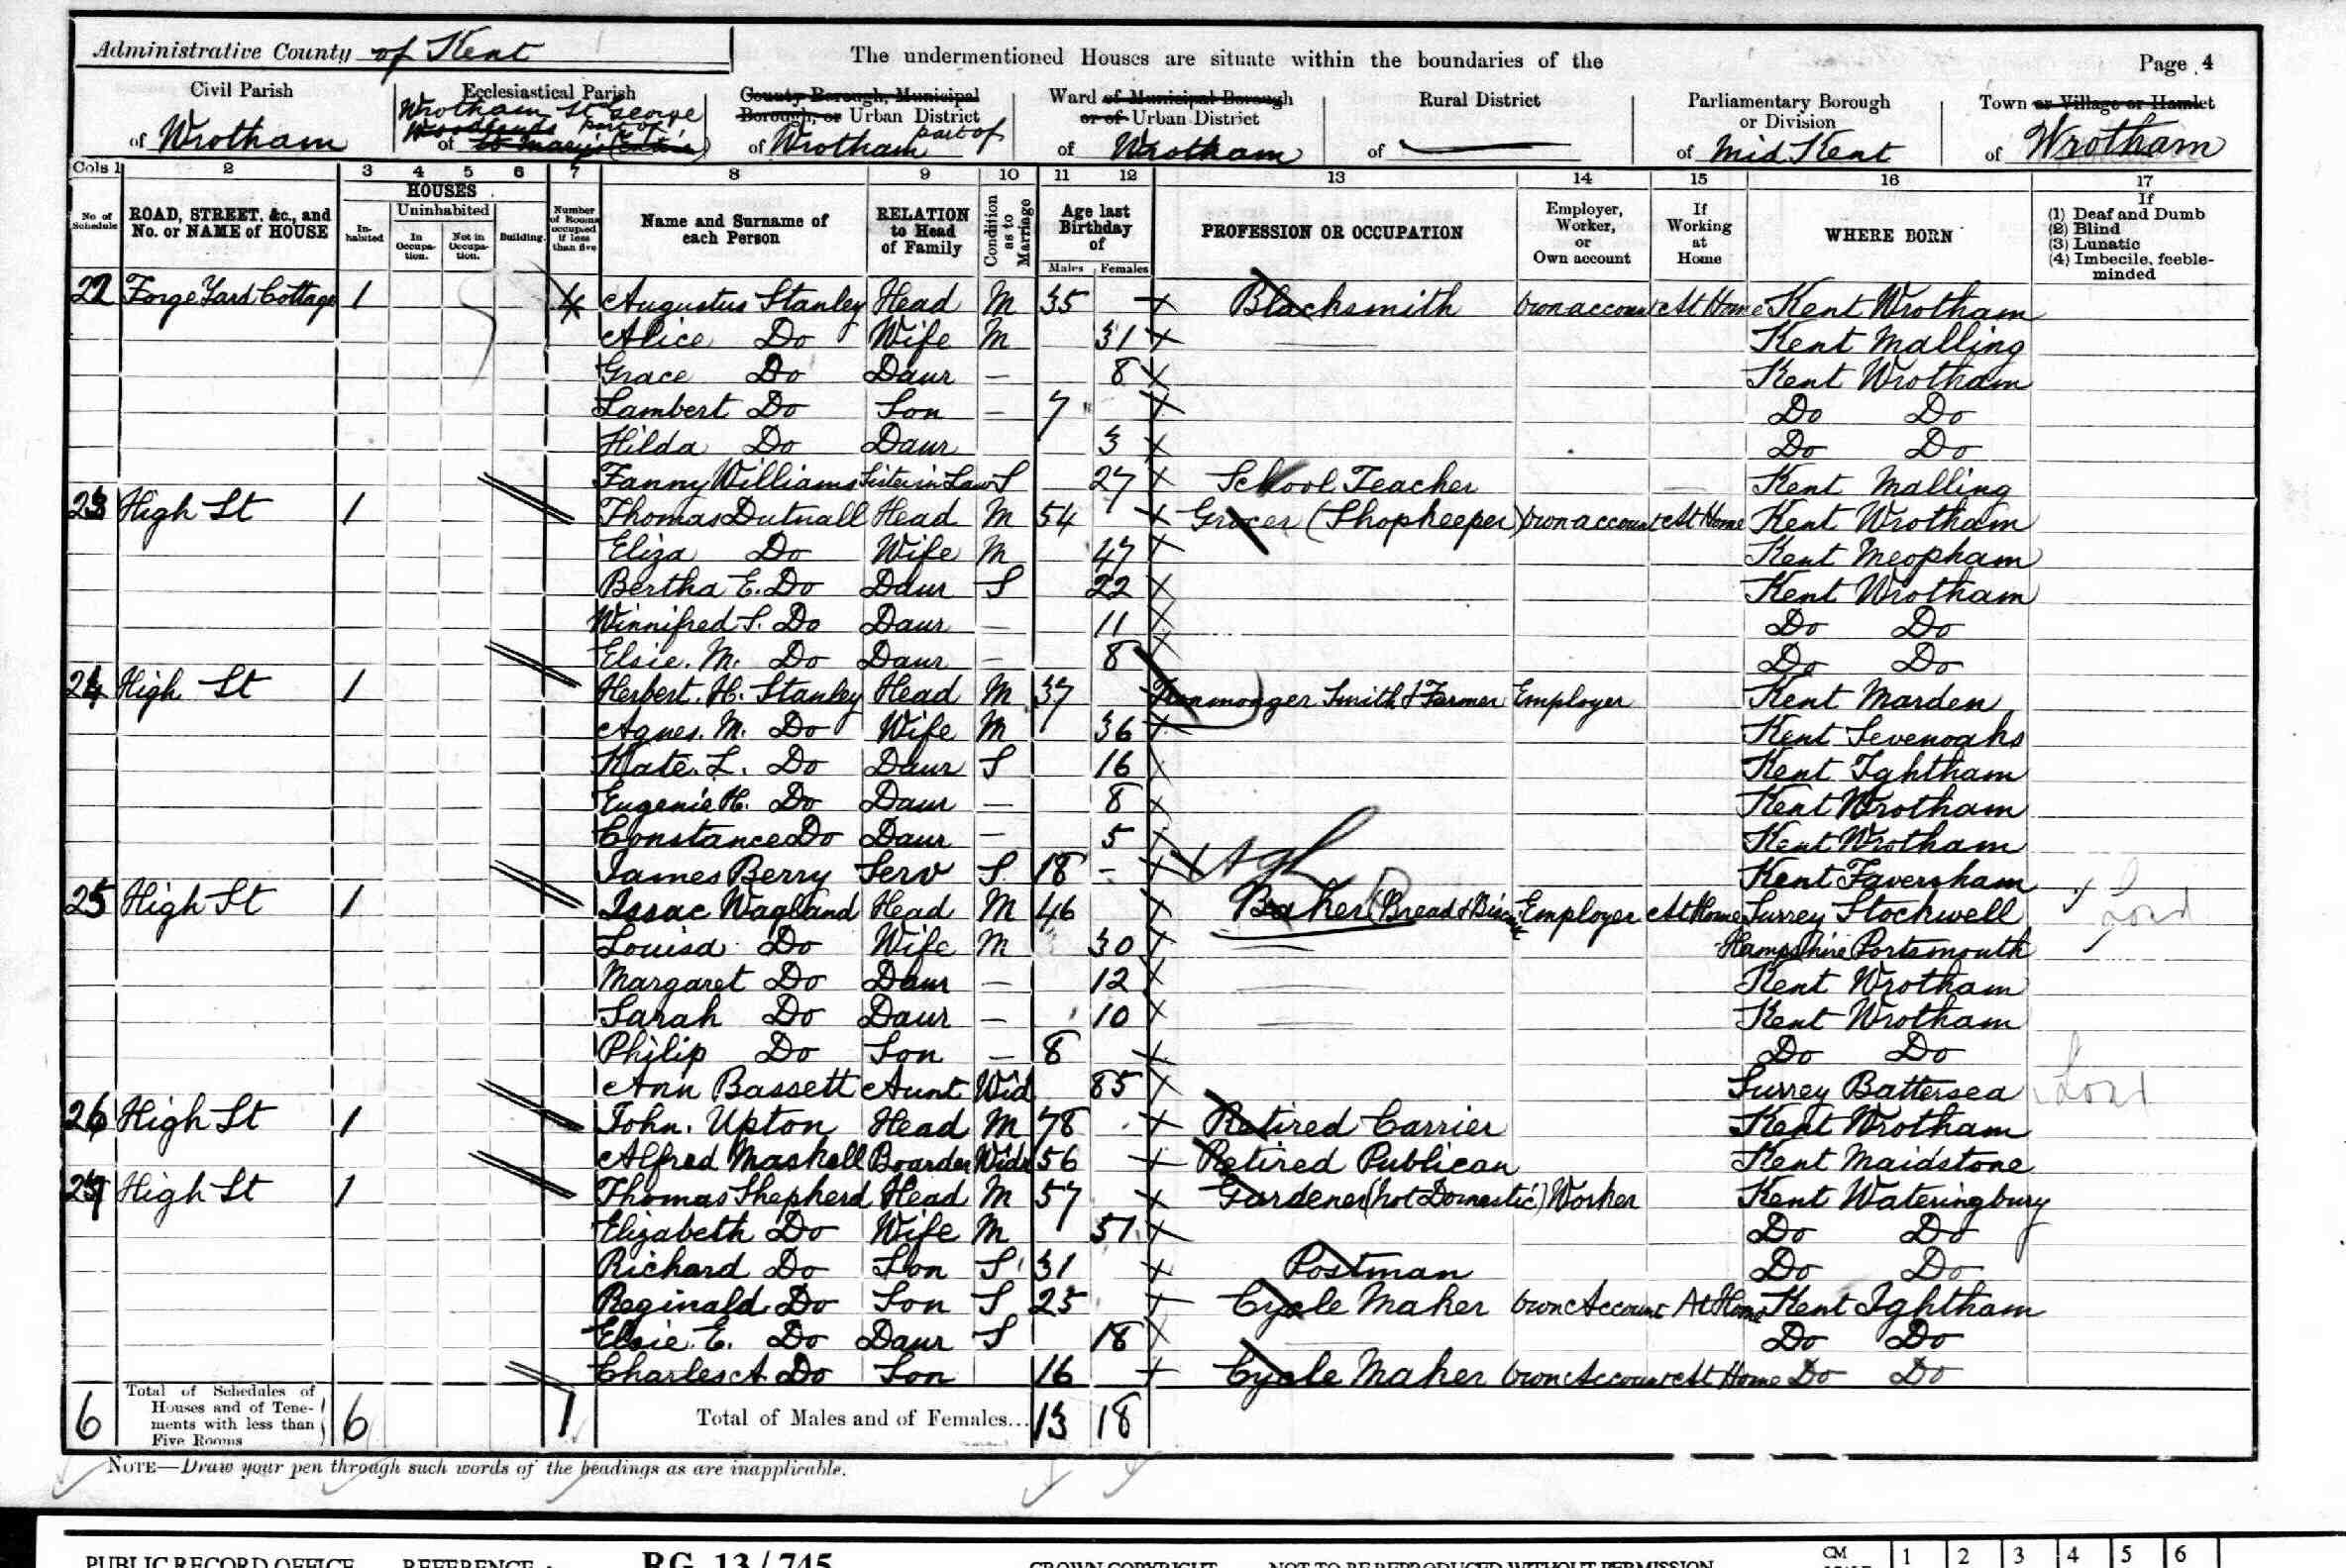 Administrative County of Kent
The undermentioned Houses are situate within the boundaries of the
Page 4
Civil Parish
of Wrotham
Ecclesiastical Parish
Wrotham St George
part of
of St Mary's (Entire)
County Borough, Municipal
Borough, or Urban District
part of
of Wrotham
Ward of Municipal Borough
or of Urban District
of Wrotham
Rural District
of
Parliamentary Borough
or Division
of Mid Kent
Town or Village or Hamlet
of Wrotham
Cols 1 2 3 4 5 6 7 8 9 10 11 12 13 14 15 16 17
No of Schedule
ROAD, STREET, &c., and No. or NAME of HOUSE
HOUSES
In-habited
Uninhabited
In Occupa-tion.
Not in Occupa-tion.
Building.
Number of Rooms occupied if less than five
Name and Surname of each Person
RELATION to Head of Family
Condition as to Marriage
Age last Birthday of
Males Females
PROFESSION OR OCCUPATION
Employer, Worker, or Own account
If Working at Home
WHERE BORN
If
(1) Deaf and Dumb
(2) Blind
(3) Lunatic
(4) Imbecile, feeble-minded
22 Forge Yard Cottage 1 4 Augustus Stanley Head M 35 Blacksmith Own account At Home Kent Wrotham
Alice Do Wife M 31 Kent Malling
Grace Do Daur — 8 Kent Wrotham
Lambert Do Son — 7 Do Do
Hilda Do Daur 3 Do Do
Fanny Williams Sister in Law S 27 School Teacher Kent Malling
23 High St 1 Thomas Dutnall Head M 54 Grocer (Shopkeeper) Own account At Home Kent Wrotham
Eliza Do Wife M 47 Kent Meopham
Bertha E. Do Daur S 22 Kent Wrotham
Winnifred S. Do Daur — 11 Do Do
Elsie. M. Do Daur — 8 Do Do
24 High St 1 Herbert. H. Stanley Head M 37 Ironmonger Smith & Farmer Employer Kent Marden
Agnes. M. Do Wife M 36 Kent Sevenoaks
Kate. L. Do Daur S 16 Kent Ightham
Eugenie H. Do Daur — 8 Kent Wrotham
Constance Do Daur — 5 Kent Wrotham
James Berry Serv S. 18 - Kent Faversham
25 High St 1 Issac Wagland Head M 46 Baker (Bread & Biscuit Employer At Home Surrey Stockwell
Louisa Do Wife M 30 Hampshire Portsmouth
Margaret Do Daur — 12 Kent Wrotham
Sarah Do Daur — 10 Kent Wrotham
Philip Do Son — 8 Do Do
Ann Bassett Aunt Wid 85 Surrey Battersea
26 High St 1 John. Upton Head M 78 Retired Carrier Kent Wrotham
Alfred Maskell Boarder Widr 56 Retired Publican Kent Maidstone
27 High St 1 Thomas Shepherd Head M 57 Gardener (not Domestic) Worker Kent Wateringbury
Elizabeth Do Wife M 51 Do Do
Richard Do Son S 31 Postman Do Do
Reginald Do Son S 25 Cycle Maker Own Account At Home Kent Ightham
Elsie. E. Do Daur S 18 Do Do
Charles A Do Son 16 Cycle Maker Own Account At Home Do Do
6 Total of Schedules of Houses and of Tene-ments with less than Five Rooms 6 1 Total of Males and of Females... 13 18
NOTE—Draw your pen through such words of the headings as are inapplicable.
PUBLIC RECORD OFFICE REFERENCE : RG 13/745 CROWN COPYRIGHT NOT TO BE REPRODUCED WITHOUT PERMISSION CM 1 2 3 4 5 6